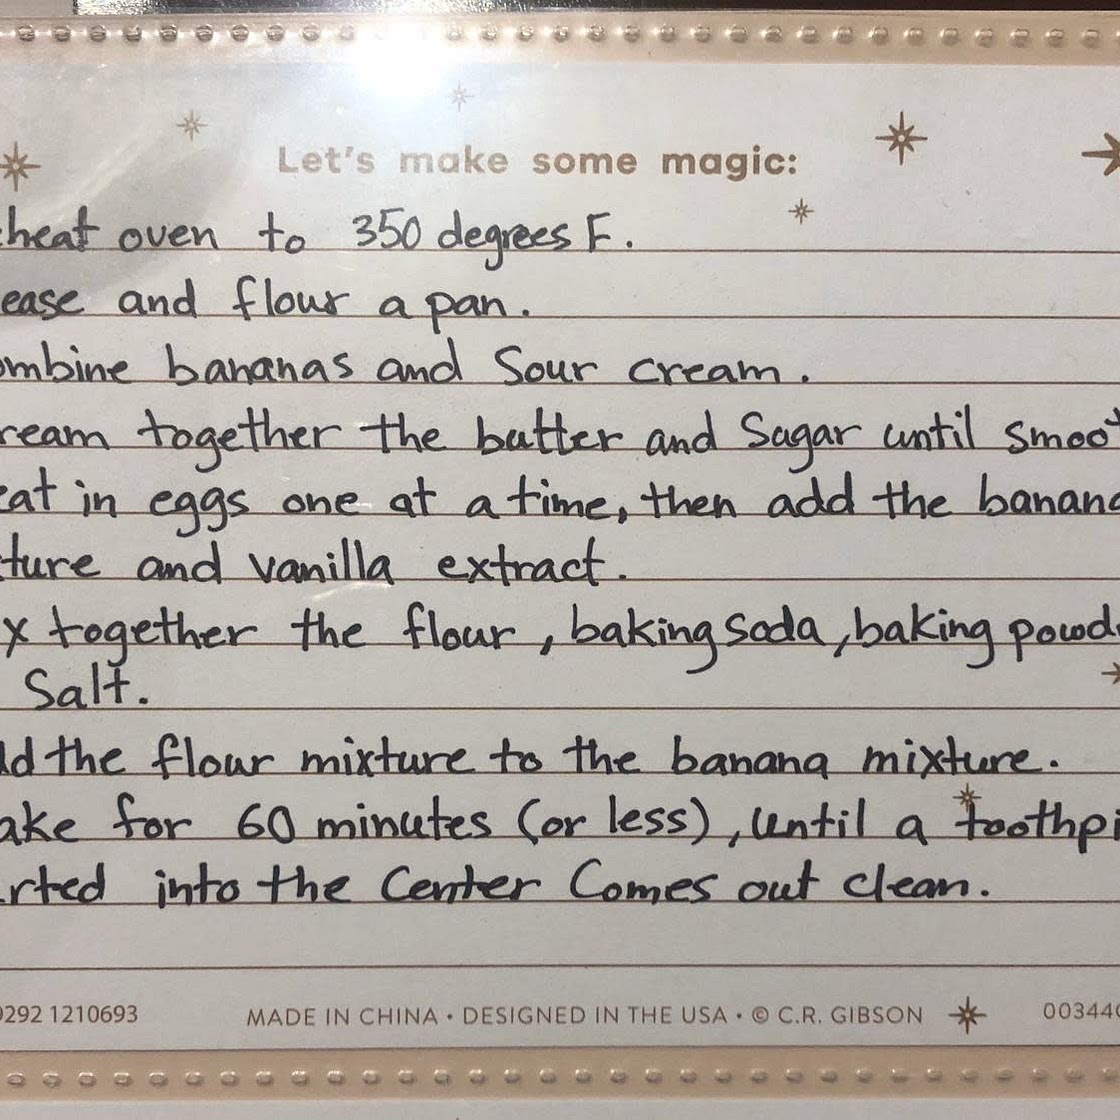 Let's make some magic:
heat oven to 350 degrees F.
ease and flour a pan.
ombine bananas and Sour cream.
ream together the butter and Sugar until smoot
eat in eggs one at a time, then add the banana
ture and vanilla extract.
x together the flour, baking soda, baking powde
Salt.
dd the flour mixture to the banana mixture.
ake for 60 minutes (or less), until a toothpi
rted into the Center Comes out clean.
0292 1210693 MADE IN CHINA • DESIGNED IN THE USA • © C.R. GIBSON 003440